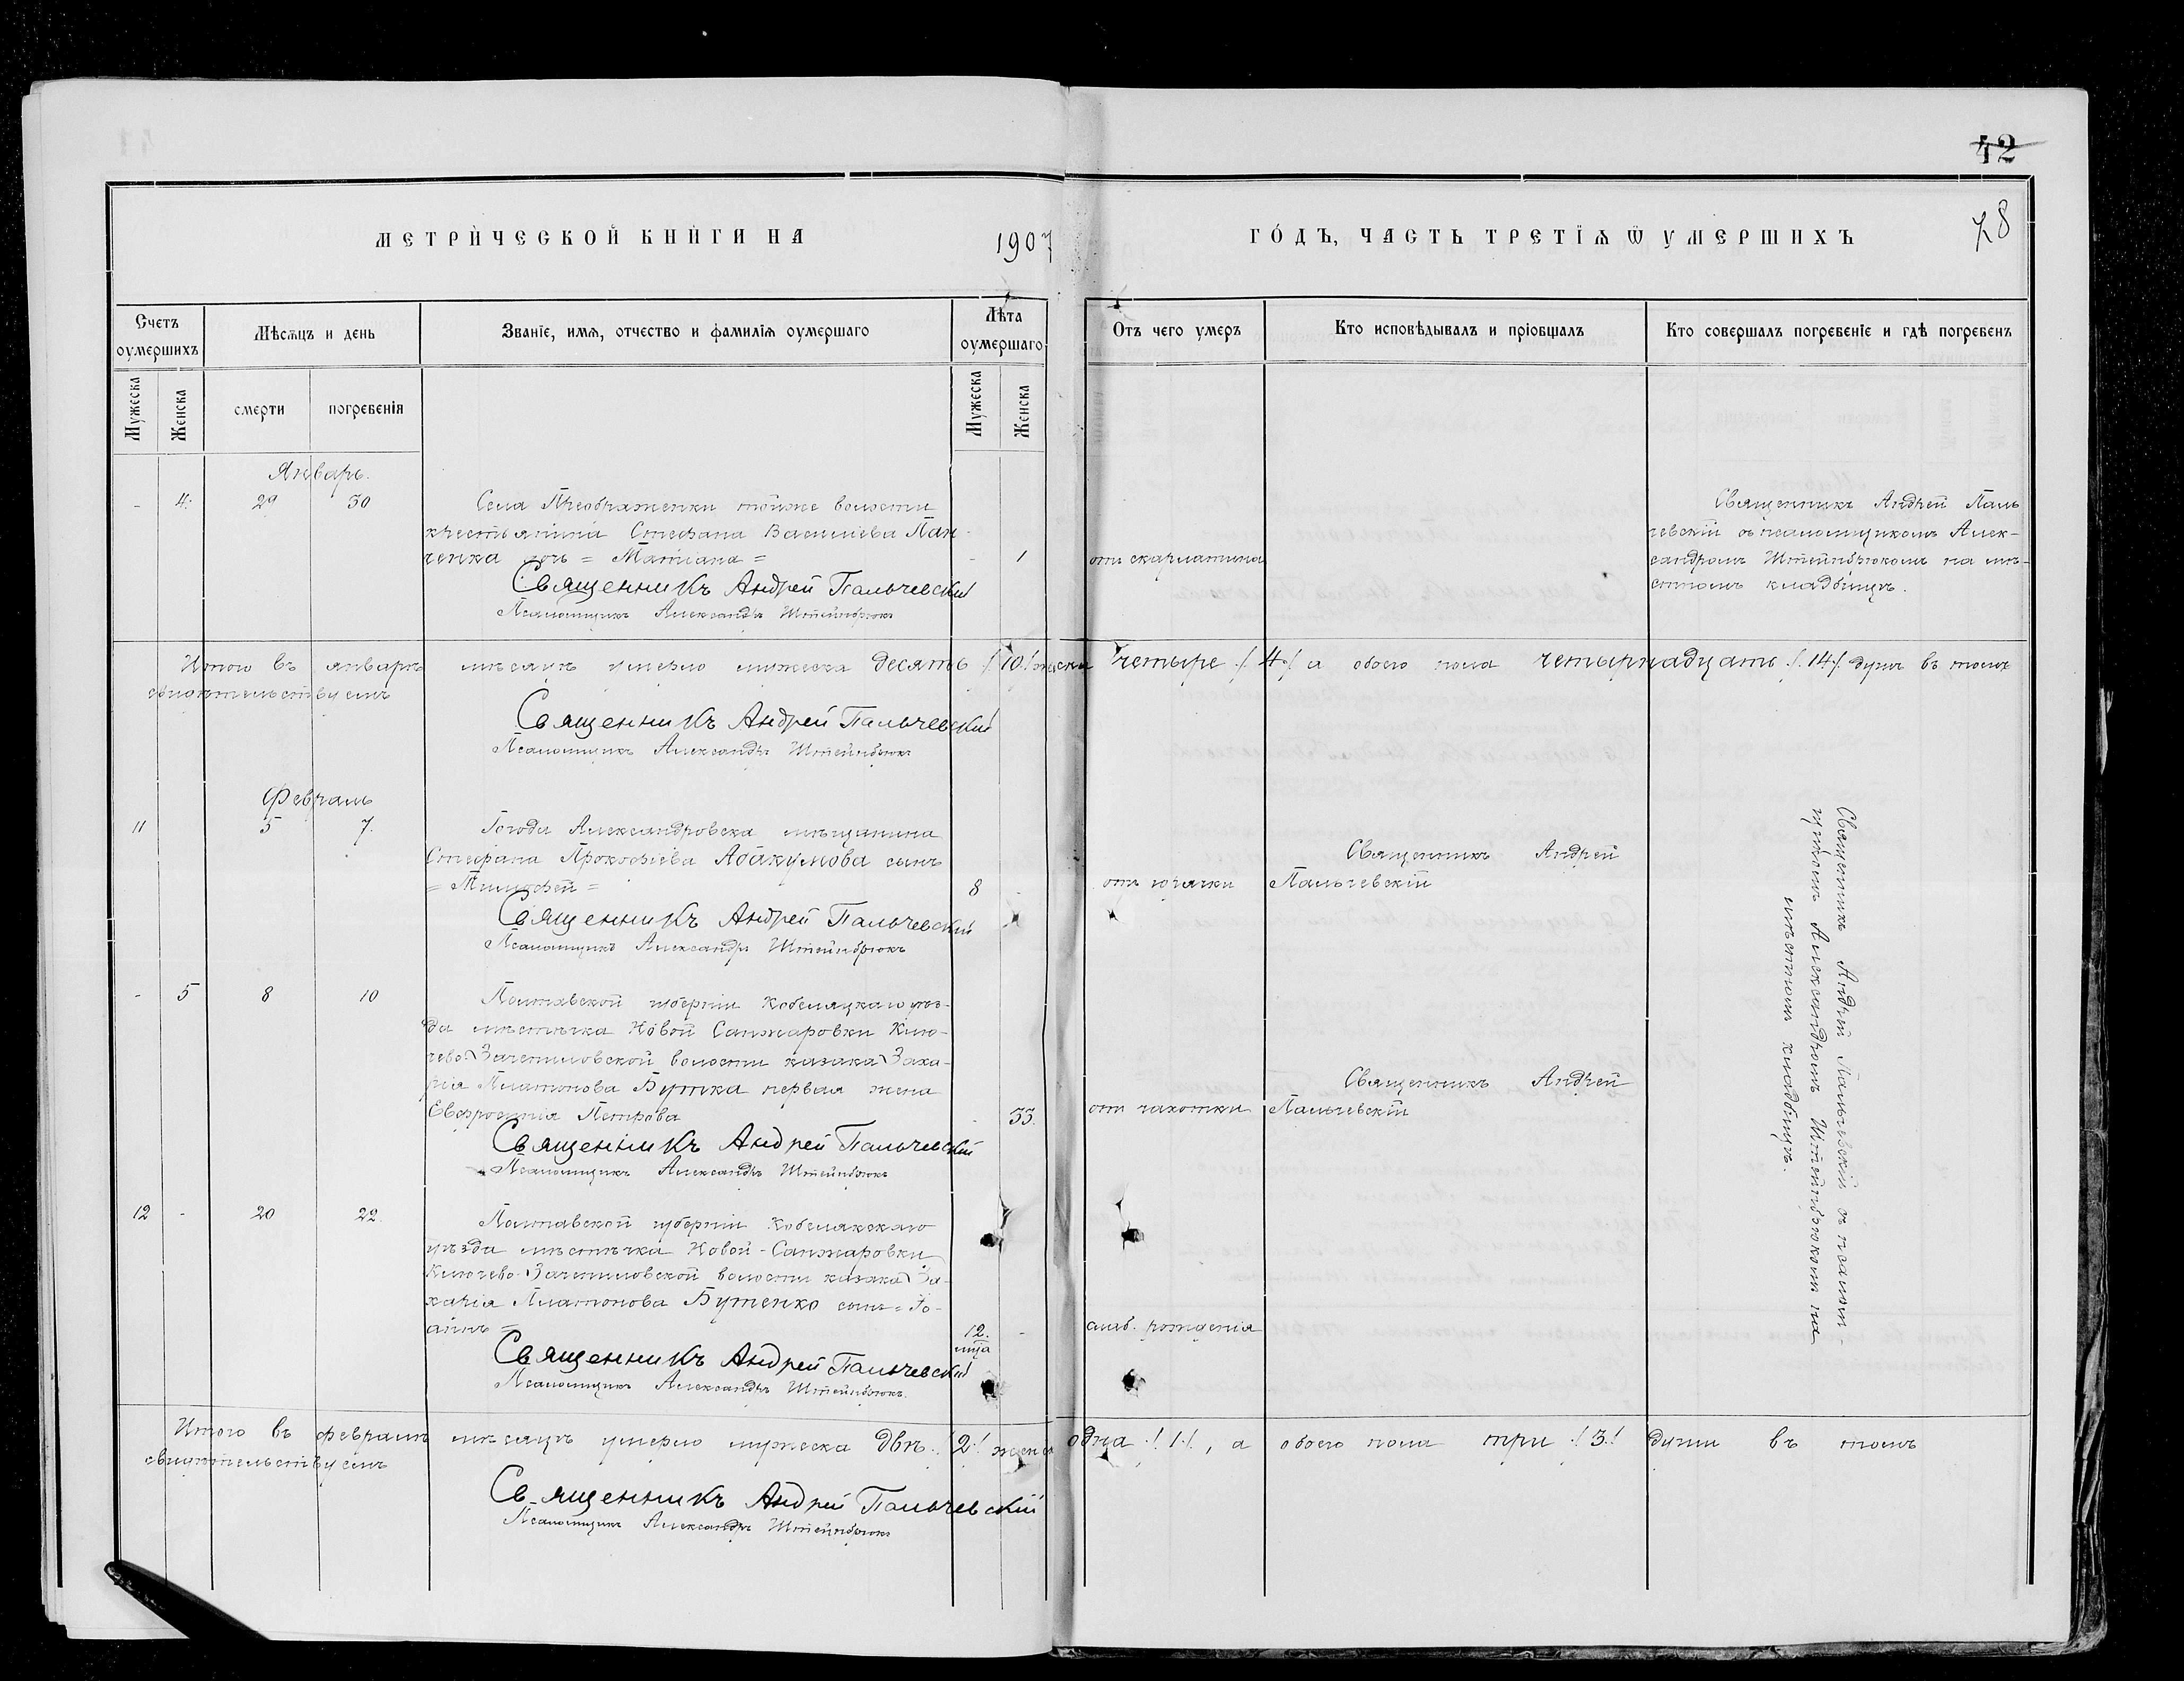 42
МЕТРИЧЕСКОЙ КНИГИ НА 1907 ГОДЪ, ЧАСТЬ ТРЕТІЯ Ѿ УМЕРШИХЪ
78
Счетъ оумершихъ
Мѣсяцъ и день
Званіе, имя, отчество и фамилія оумершаго
Лѣта оумершаго
Отъ чего умеръ
Кто исповѣдывалъ и пріобщалъ
Кто совершалъ погребеніе и гдѣ погребенъ
Мужеска
Женска
смерти
погребенія
Мужеска
Женска
Январь.
- 4. 29 30
Села Преображенки тойже волости
крестьянина Стефана Васильева Пан-
ченка дочь = Татіана =
- 1
отъ скарлатина
Священникъ Андрей Паль
чевскій съ псаломщикомъ Алек-
сандромъ Штейнбрюкомъ на мѣ-
стномъ кладбищѣ.
Священникъ Андрей Пальчевскій
Псаломщикъ Александръ Штейнбрюкъ
Итого въ январѣ мѣсяцѣ умерло мужеска десять /.10./ женска четыре /.4./ а обоего пола четырнадцать /.14./ душъ въ томъ
свидѣтельствуемъ
Священникъ Андрей Пальчевскій
Псаломщикъ Александръ Штейнбрюкъ
Февраль
11 5 7.
Города Александровска мѣщанина
Стефана Прокофіева Абакумова сынъ
= Тимофей =
8 -
отъ горячки
Священникъ Андрей
Пальчевскій
Священникъ Андрей Пальчевскій
Псаломщикъ Александръ Штейнбрюкъ
- 5 8 10
Полтавской губерніи Кобеляцкаго уѣз-
да мѣстечка Новой Санжаровки Клю-
чево-Зачепиловской волости казака Заха-
рія Платонова Бутка первая жена
Евфросинія Петрова
- 53.
отъ чахотки
Священникъ Андрей
Пальчевскій
Священникъ Андрей Пальчевскій
Псаломщикъ Александръ Штейнбрюкъ
12 - 20 22.
Полтавской губерніи Кобелякскаго
уѣзда мѣстечка Новой-Санжаровки
Ключево-Зачепиловской волости казака За-
харія Платонова Бутенко сынъ = Іо-
аннъ =
12. мца -
слаб. рожденія
Священникъ Андрей Пальчевскій
Псаломщикъ Александръ Штейнбрюкъ.
Священникъ Андрей Пальчевскій съ псалом-
щикомъ Александромъ Штейнбрюкомъ на
мѣстномъ кладбищѣ.
Итого въ февралѣ мѣсяцѣ умерло мужеска двѣ /.2./ женска одна /.1./, а обоего пола три /.3./ души въ томъ
свидѣтельствуемъ
Священникъ Андрей Пальчевскій
Псаломщикъ Александръ Штейнбрюкъ